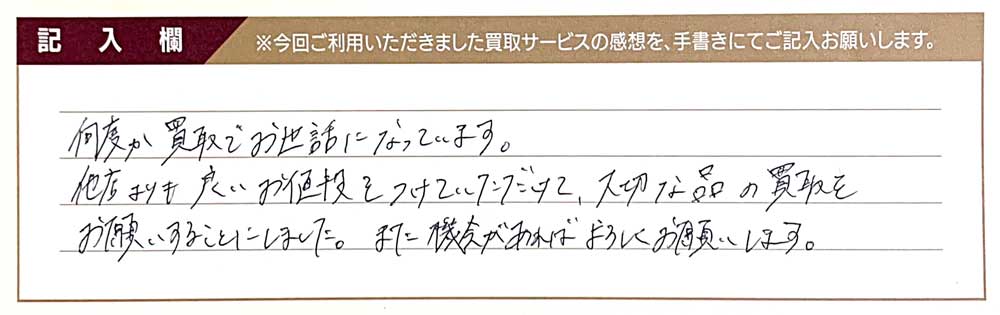 記入欄
※今回ご利用いただきました買取サービスの感想を、手書きにてご記入お願いします。
何度か買取でお世話になっています。
他店よりも良いお値段をつけていただけて、大切な品の買取を
お願いすることにしました。また機会があればよろしくお願いします。